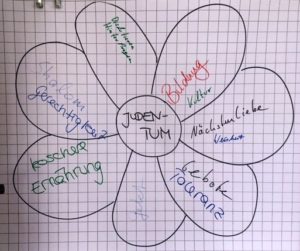 JUDEN-
TUM
Bildung
Kultur
Nächstenliebe
Gebote
Toleranz
koschere
Ernährung
Shalom
Gerechtigkeit